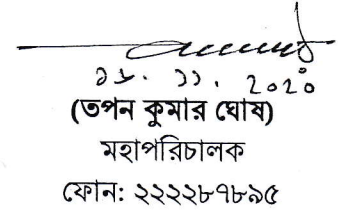 ১৮.১১.২০২০
(তপন কুমার ঘোষ)
মহাপরিচালক
ফোন: ২২২২৮৭৮৯৫